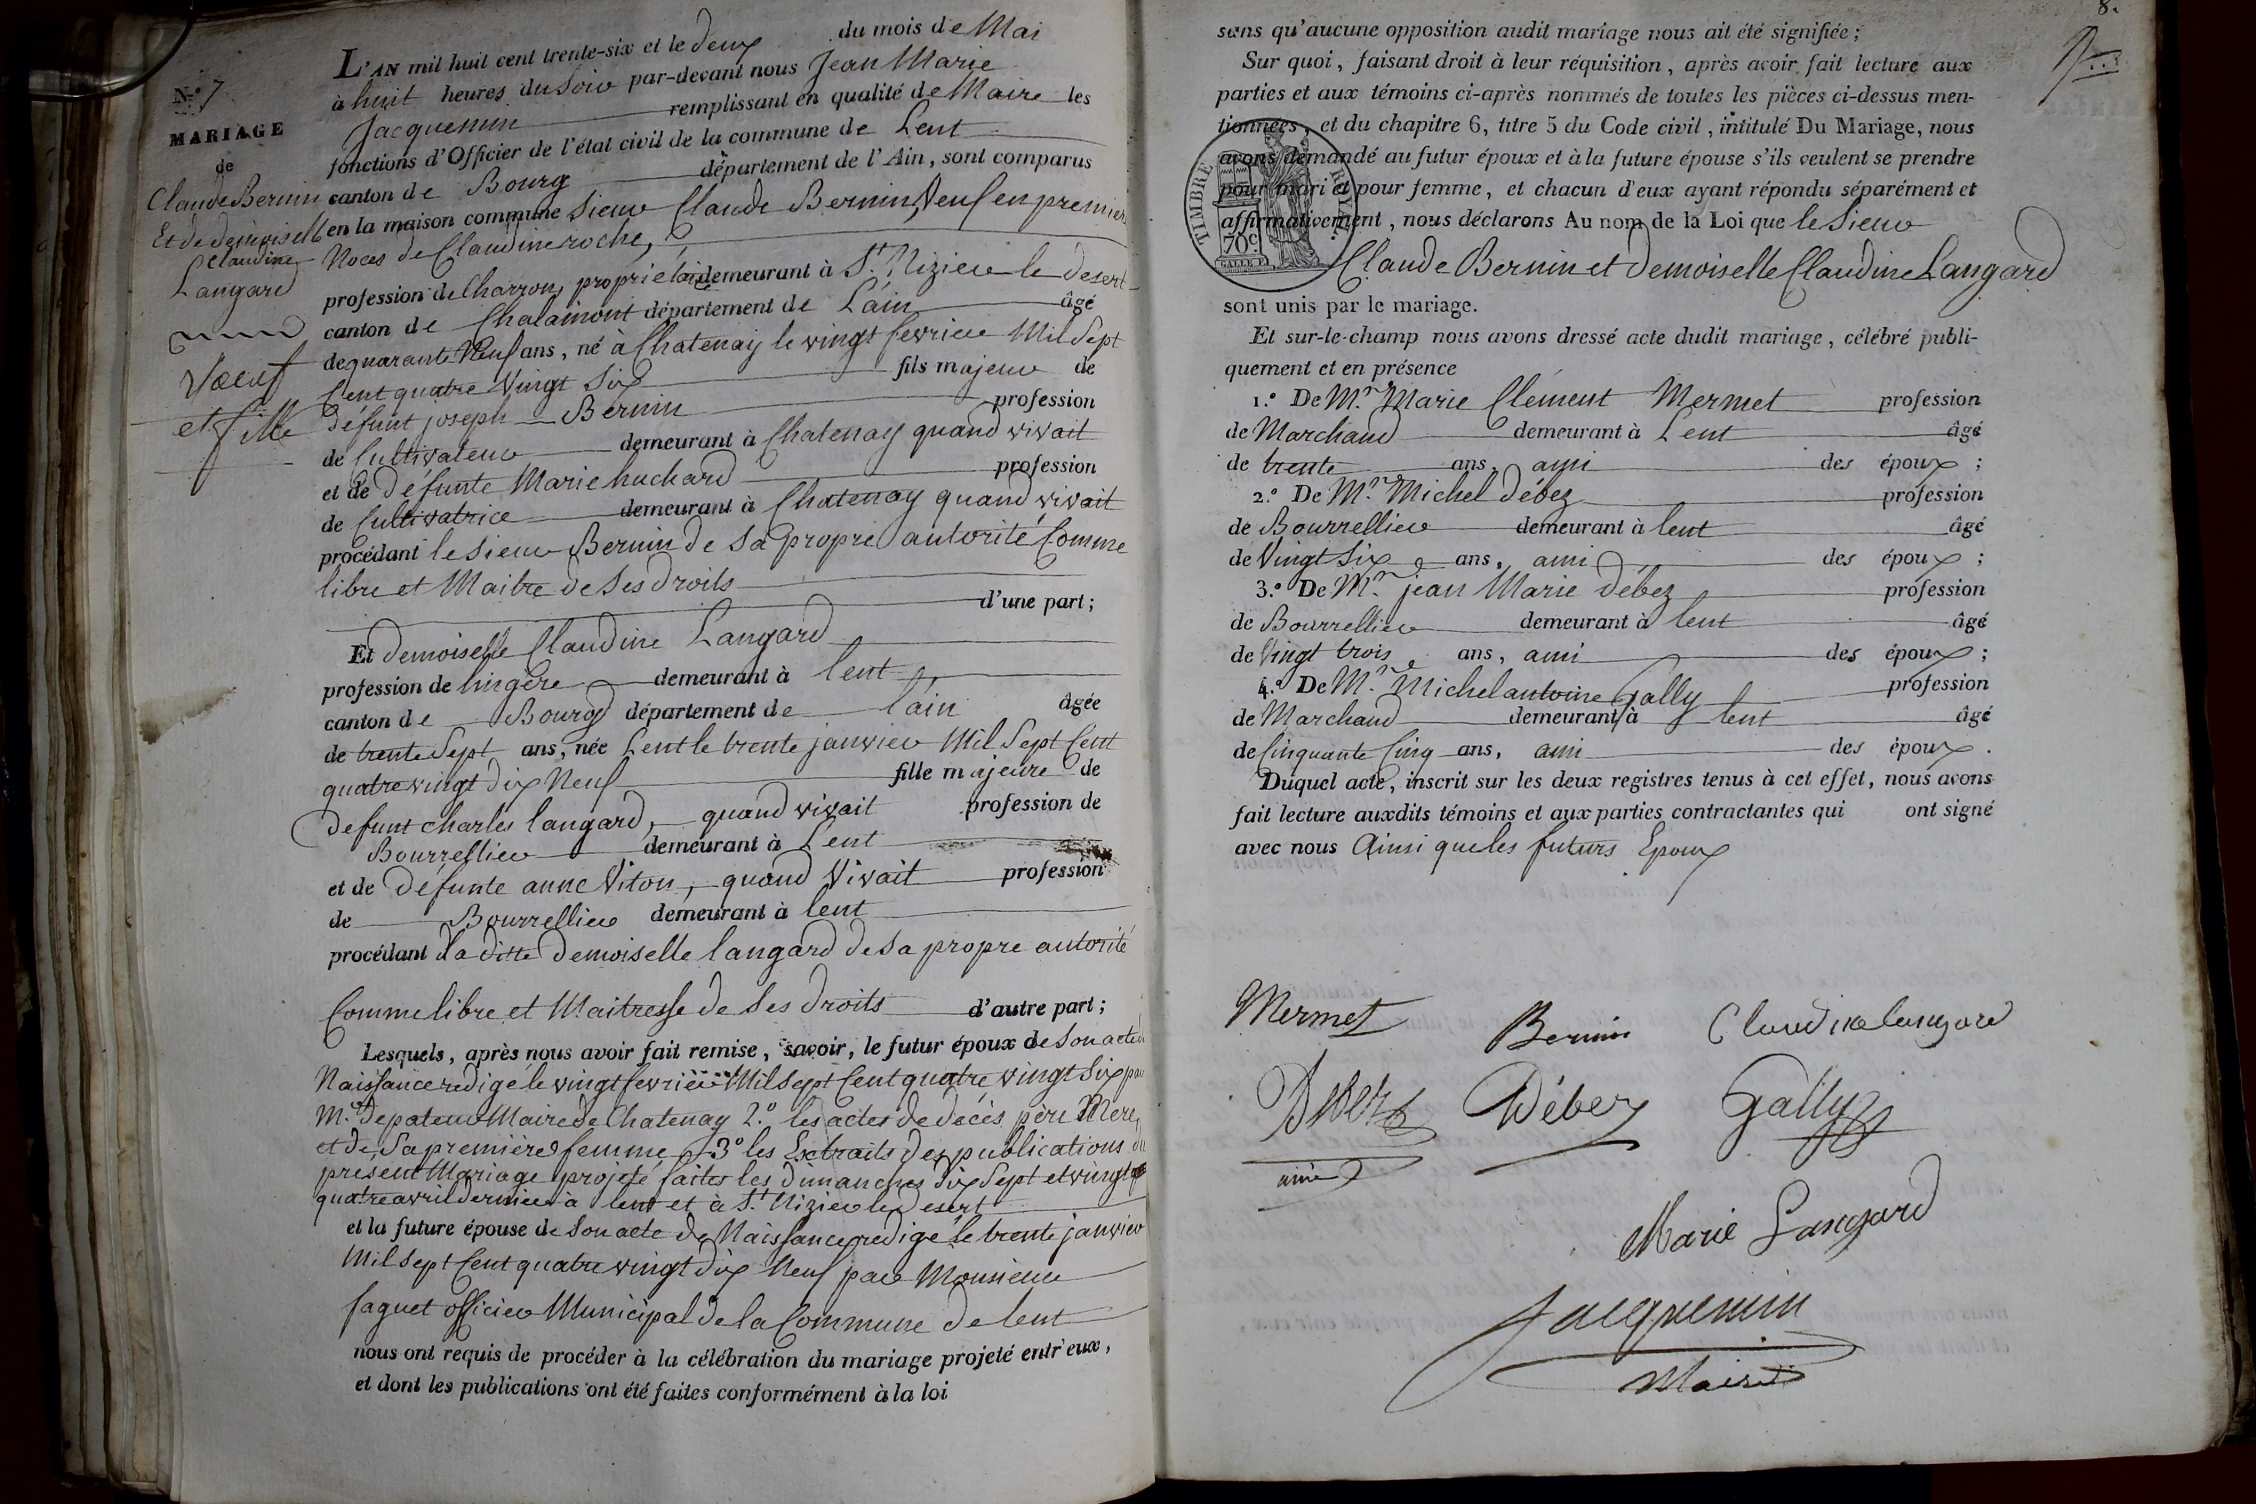 N.º 7
MARIAGE
de
Claude Bernin
Et de demoiselle
Claudine
Langard
Vœuf
et fille
L'AN mil huit cent trente-six et le deux du mois de Mai
à huit heures du Soir par-devant nous Jean Marie
Jacquemin remplissant en qualité de Maire les
fonctions d'Officier de l'état civil de la commune de Lent
canton de Bourg département de l'Ain, sont comparus
en la maison commune Sieur Claude Bernin, Veuf en premier
Noces de Claudine roche,
profession de Charron, propriétaire demeurant à S.t Nizier le desert
canton de Chalamont département de L'ain âgé
de quarante Neuf ans, né à Chatenay le vingt fevrier Mil Sept
Cent quatre Vingt Six fils majeur de
défunt joseph Bernin profession
de Cultivateur demeurant à Chatenay quand vivait
et de défunte Marie huchard profession
de Cultivatrice demeurant à Chatenay quand vivait
procédant le Sieur Bernin de Sa propre autorité Comme
libre et Maitre de Ses droits
d'une part;
Et demoiselle Claudine Langard
profession de lingère demeurant à lent
canton de Bourg département de l'ain âgée
de trente Sept ans, née Lent le trente janvier Mil Sept Cent
quatre vingt dix Neuf fille majeure de
defunt charles langard, quand vivait profession de
Bourrellier demeurant à Lent
et de défunte anne Viton, quand Vivait profession
de Bourrellier demeurant à lent
procédant la ditte Demoiselle langard de Sa propre autorité
Comme libre et Maitresse de Ses droits d'autre part;
Lesquels, après nous avoir fait remise, savoir, le futur époux de Son acte
Naissance redigé le vingt fevrier Mil Sept Cent quatre vingt Six par
M.r depateur Maire de Chatenay 2.º les actes de decès père Mere,
et de Sa première femme 3º les Extraits des publications du
présent Mariage projeté faites les dimanches dix Sept et vingt
quatre avril dernier à lent et à S.t Nizier le Desert
et la future épouse de Son acte de Naissance redigé le trente janvier
Mil Sept Cent quatre vingt dix Neuf par Monsieur
faguet officier Municipal de la Commune de lent
nous ont requis de procéder à la célébration du mariage projeté entr'eux,
et dont les publications ont été faites conformément à la loi
8.
sans qu'aucune opposition audit mariage nous ait été signifiée;
Sur quoi, faisant droit à leur réquisition, après avoir fait lecture aux
parties et aux témoins ci-après nommés de toutes les pièces ci-dessus men-
tionnées, et du chapitre 6, titre 5 du Code civil, intitulé Du Mariage, nous
avons demandé au futur époux et à la future épouse s'ils veulent se prendre
pour mari et pour femme, et chacun d'eux ayant répondu séparément et
affirmativement, nous déclarons Au nom de la Loi que le Sieur
TIMBRE ROYAL
70c
Claude Bernin et demoiselle Claudine Langard
sont unis par le mariage.
Et sur-le-champ nous avons dressé acte dudit mariage, célébré publi-
quement et en présence
1.º De M.r Marie Clément Mermet profession
de Marchand demeurant à Lent âgé
de trente ans, ami des époux;
2.º De M.r Michel Débez profession
de Bourrellier demeurant à lent âgé
de Vingt Six ans, ami des époux;
3.º De M.r jean Marie Débez profession
de Bourrellier demeurant à lent âgé
de Vingt trois ans, ami des époux;
4.º De M.r Michel antoine Gally profession
de Marchand demeurant à lent âgé
de Cinquante Cinq ans, ami des époux.
Duquel acte, inscrit sur les deux registres tenus à cet effet, nous avons
fait lecture auxdits témoins et aux parties contractantes qui ont signé
avec nous Ainsi que les futurs Epoux
Mermet Bernin Claudine langard
Debez Débez Gally
ainé
Marie Langard
Jacquemin
Maire